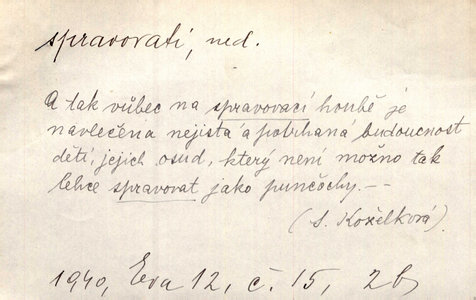 spravovati, ned.
A tak vůbec na spravovací houbě je
navlečena nejistá a potrhaná budoucnost
dětí, jejich osud, který není možno tak
lehce spravovat jako punčochy. –
(S. Koželková).
1940, Eva 12, č. 15, 2b